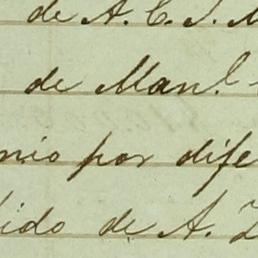 de A. C. J. M
de Man.l
nio por dife
ido de A. Z